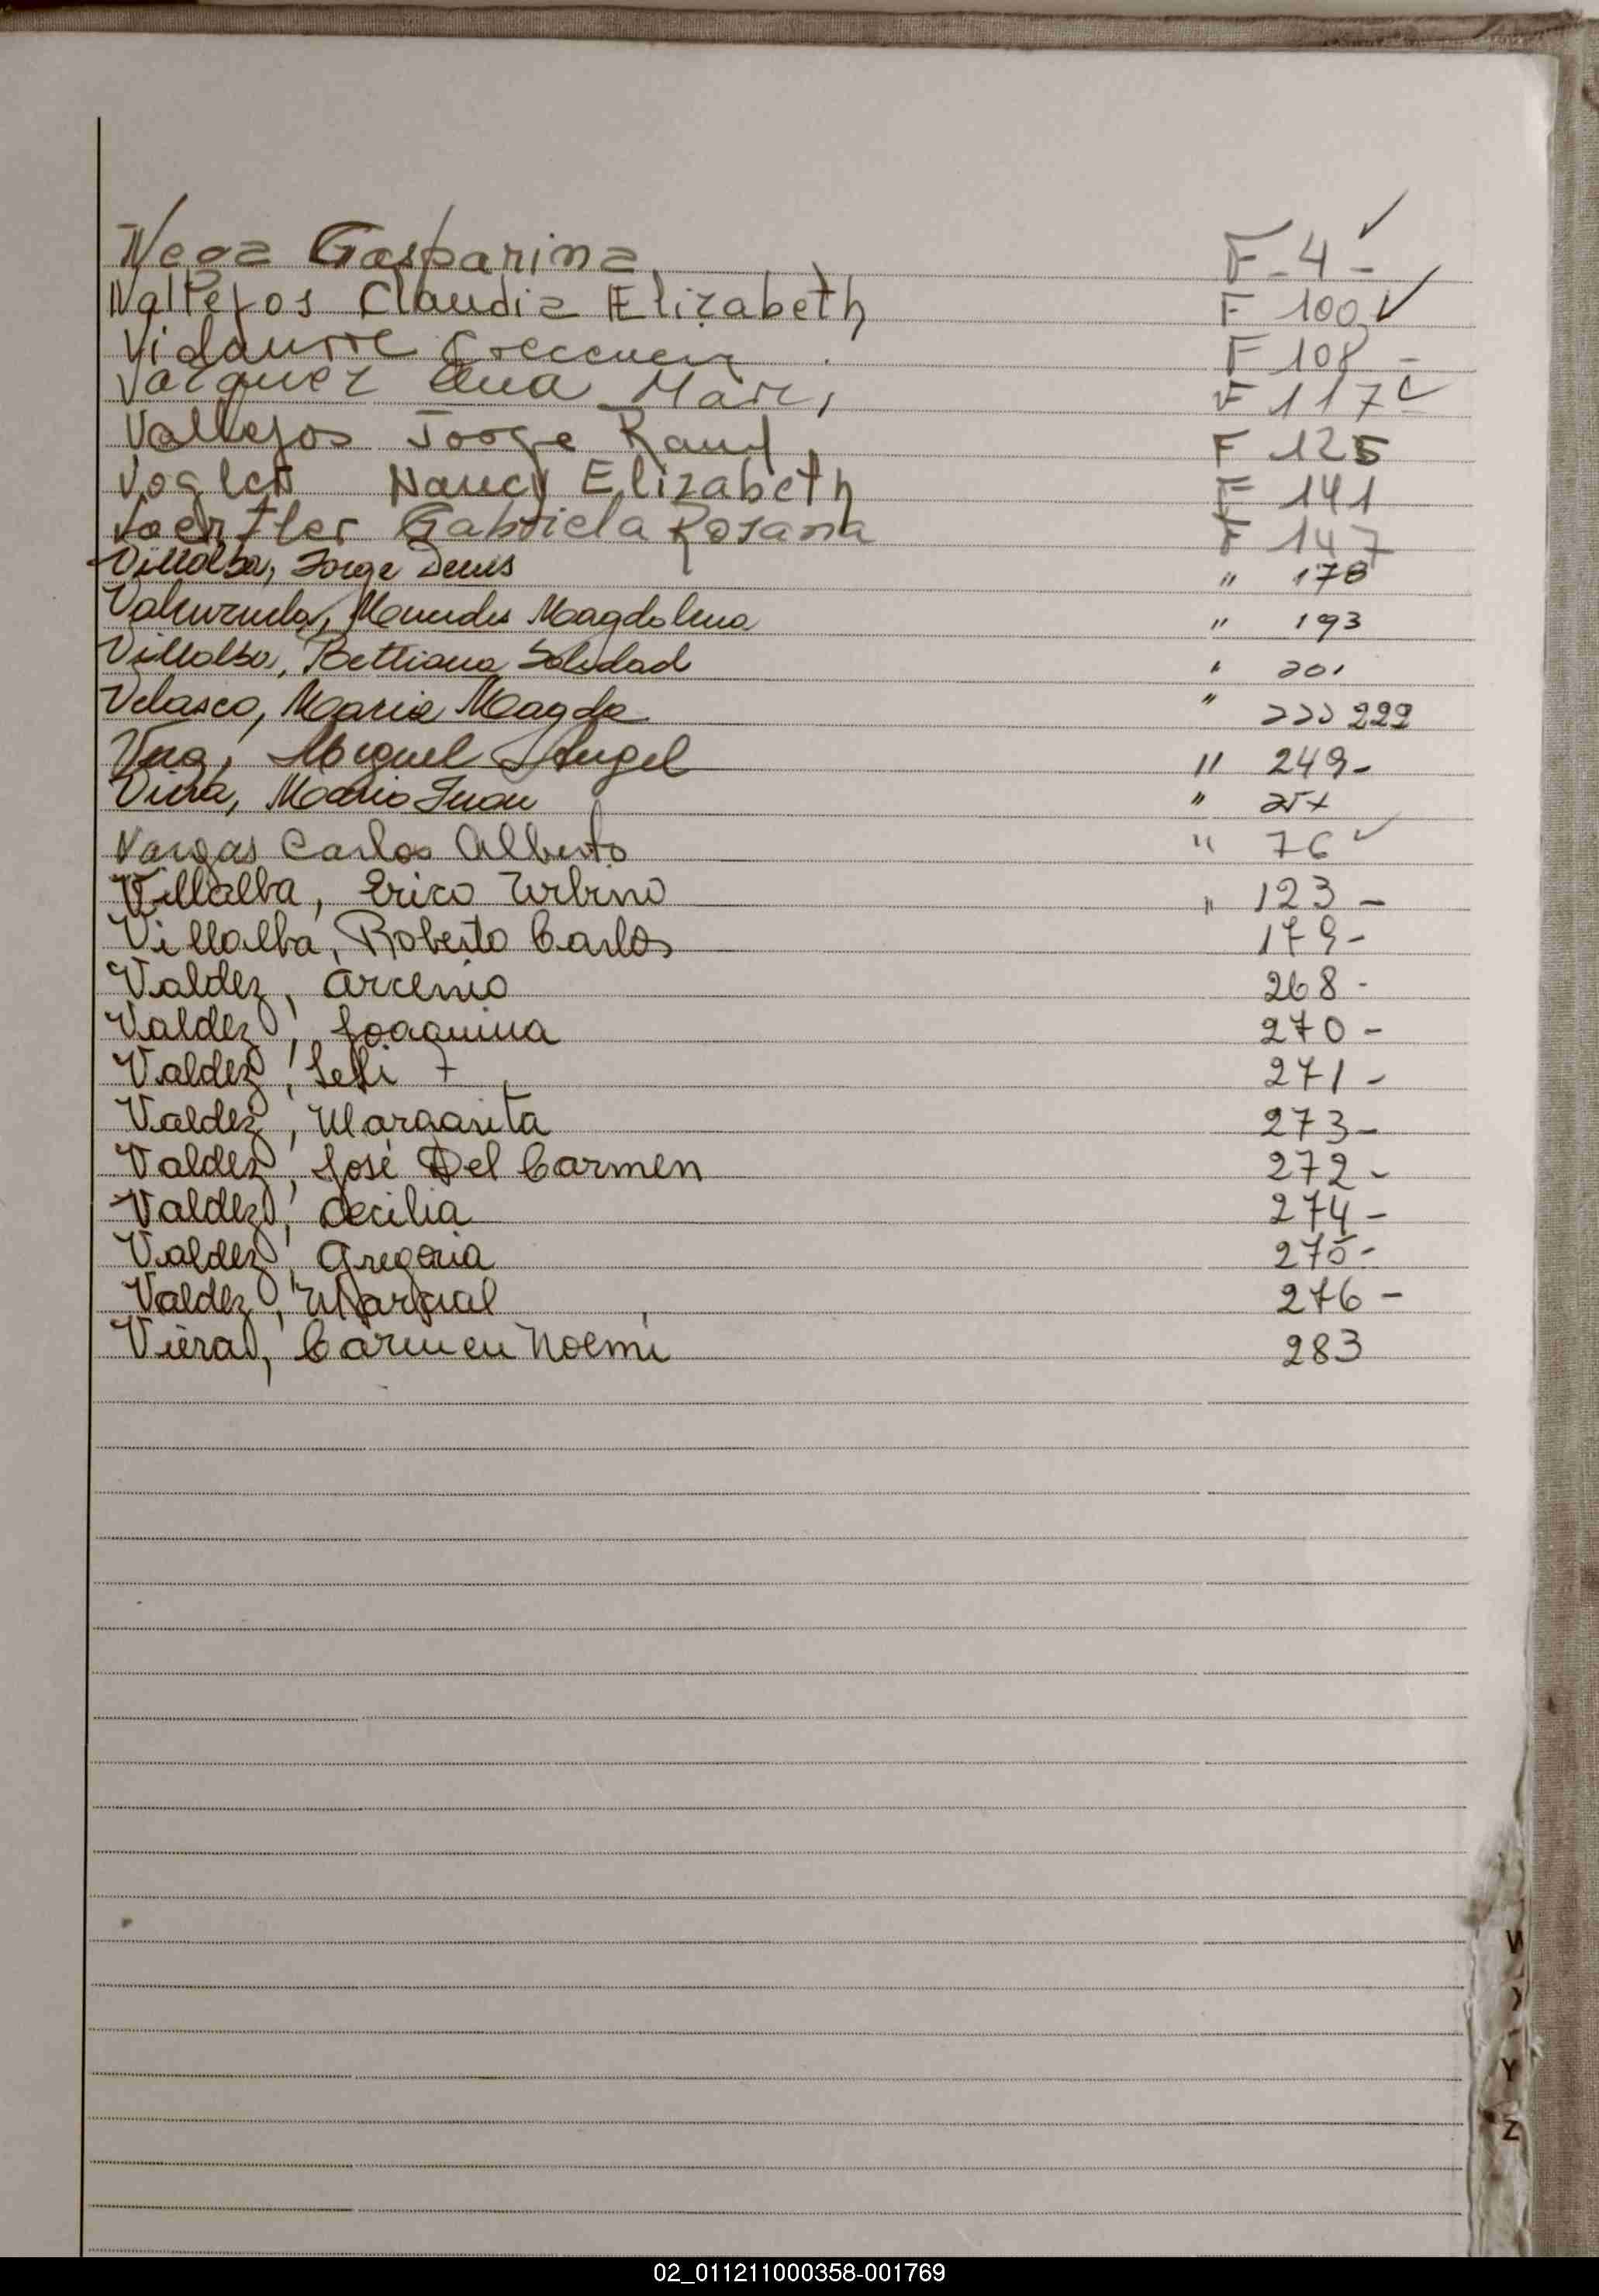 Vega Gasparina F-4- ✓
Vallejos Claudia Elizabeth F 100 ✓
Vidaurre F 108 -
Vazquez Ana Mari, F 117 ✓
Vallejos Jorge Raul F 125
Nancy Elizabeth F 141
Gabriela Rosana F 147
Villalba, Jorge Denis " 178
Valenzuela, Mercedes Magdalena " 193
Villalba, Bettiana Soledad " 201
Velasco, Maria Magda " 222 222
Vera, Miguel Angel " 249-
Viera, Mario Juan "
Vargas Carlos Alberto " 76 ✓
Villalba, Erico Urbino " 123 -
Villalba, Roberto Carlos 179-
Valdez, Arcenio 268 -
Valdez, Joaquina 270 -
Valdez, 271 -
Valdez, Margarita 273-
Valdez, José Del Carmen 272 -
Valdez, Cecilia 274 -
Valdez, Gregoria 275-
Valdez, Marcial 276 -
Viera, Carmen Noemi 283
W
X
Y
Z
02_011211000358-001769